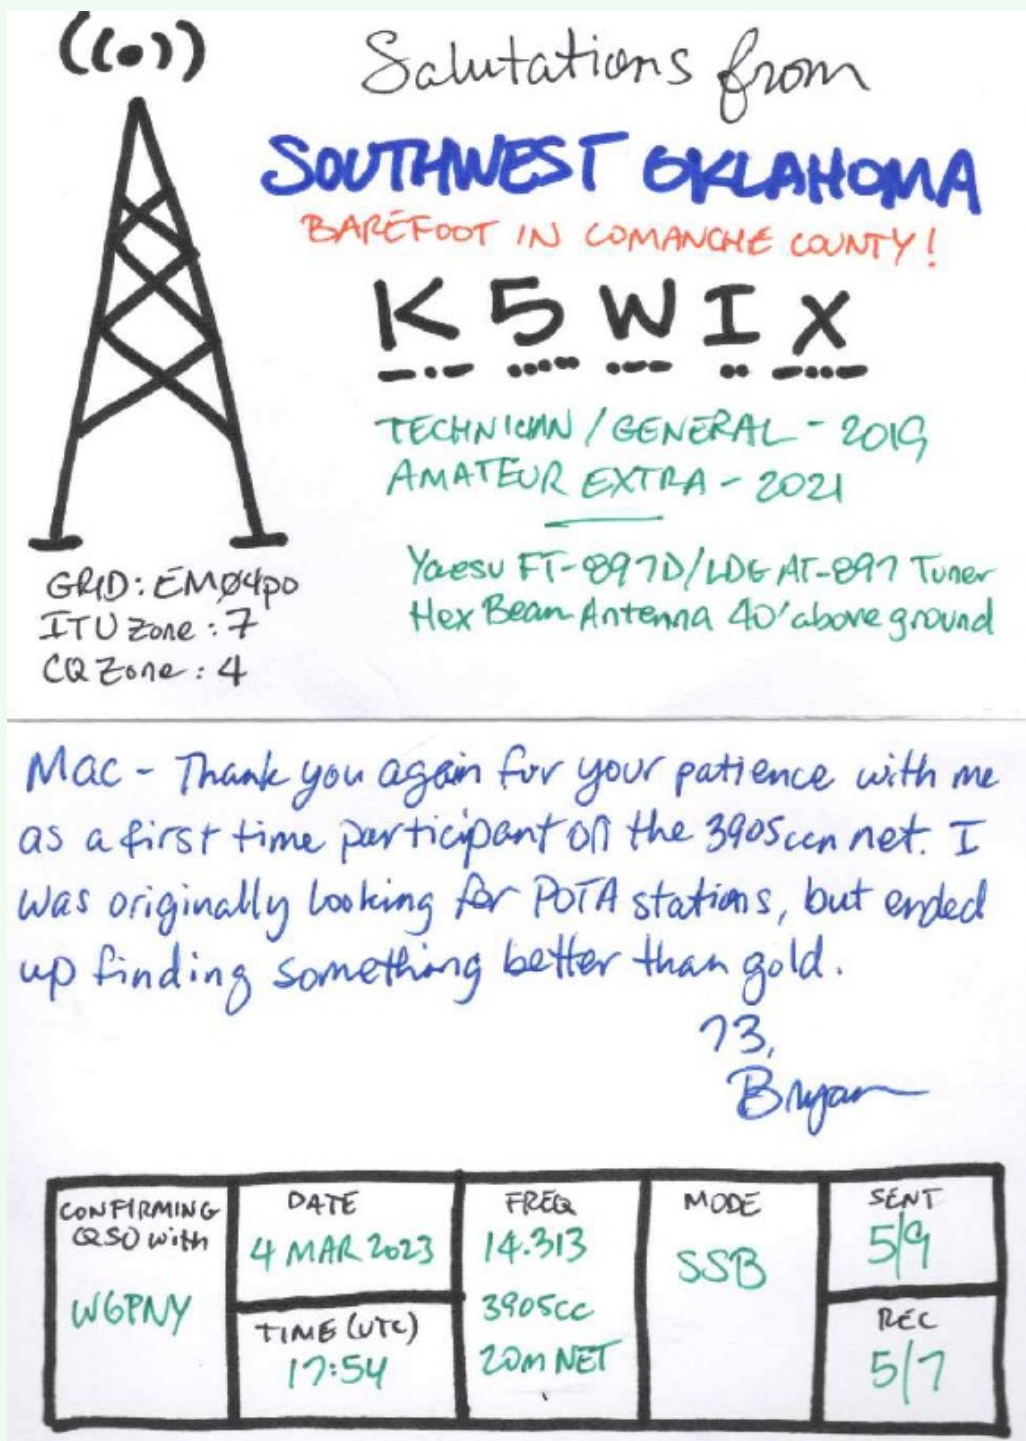 Salutations from
SOUTHWEST OKLAHOMA
BAREFOOT IN COMANCHE COUNTY!
K5WIX
-.- ..... --- .. -..-
TECHNICIAN / GENERAL - 2019
AMATEUR EXTRA - 2021
Yaesu FT-897D/LDG AT-897 Tuner
Hex Beam Antenna 40' above ground
GRID: EMØ4po
ITU Zone: 7
CQ Zone: 4
Mac - Thank you again for your patience with me
as a first time participant on the 3905ccn net. I
was originally looking for POTA stations, but ended
up finding something better than gold.
73,
Bryan
CONFIRMING
QSO with
W6PNY
DATE
4 MAR 2023
TIME (UTC)
17:54
FREQ
14.313
3905CC
20m NET
MODE
SSB
SENT
5/9
REC
5/7